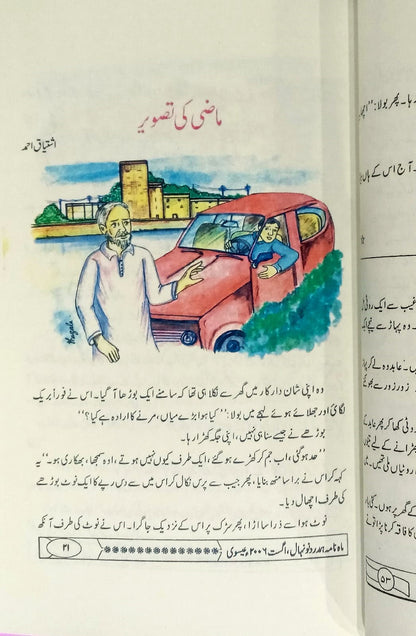 ماضی کی تصویر
اشتیاق احمد
وہ اپنی شان دار کار میں گھر سے نکلا ہی تھا کہ سامنے ایک بوڑھا آ گیا۔ اس نے فوراً بریک
لگائی اور جھلائے ہوئے لہجے میں بولا: ”کیا ہوا بڑے میاں، مرنے کا ارادہ ہے کیا؟“
بوڑھے نے جیسے سنا ہی نہیں، اپنی جگہ کھڑا رہا۔
”حد ہو گئی، اب جم کر کھڑے ہو گئے، ایک طرف کیوں نہیں ہوتے، اوہ سمجھا، بھکاری ہو۔“ یہ
کہہ کر اس نے برا سا منھ بنایا، پھر جیب سے پرس نکال کر اس میں سے دس رپے کا ایک نوٹ بوڑھے
کی طرف اچھال دیا۔
نوٹ ہوا سے ذرا سا اڑا، پھر سڑک پر اس کے نزدیک جا گرا۔ اس نے نوٹ کی طرف آنکھ
ماہ نامہ ہمدرد نونہال، اگست ۲۰۰۶ عیسوی
۲۱
رہا۔ پھر بولا: ”اچھا
۔ آج اس کے ہاں
غیب سے ایک روٹی
وہ پہاڑ سے نیچے
عابد وہ لے کر
زور زور سے بھونکنے
روٹی کھا کر پھر عابد کے
۵۳